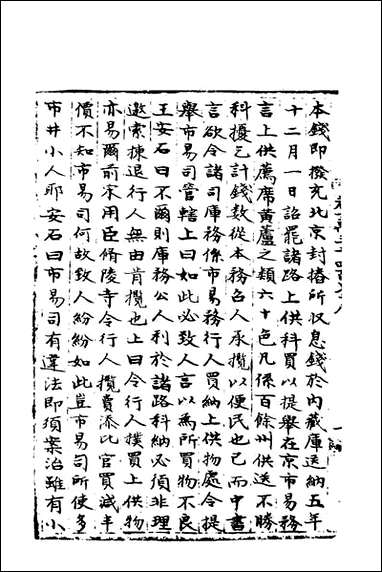 本錢即撥充北京封樁所收息錢於內藏庫送納五年
十二月一日詔罷諸路上供科買以提舉在京市易務
言上供薦席黃蘆之類六十色凡係百餘州供送不勝
科擾乞計錢數從本務召人承攬以便民也已而中書
言欲令諸司庫務係市易務行人買納上供物處令提
舉市易司管轄上曰如此必致人言以為所買物不良
王安石曰不爾則庫務公人利於諸路科納必須非理
邀索揀退行人無由肯攬也上曰令行人撲買上供物
亦易爾前宋用臣脩陵寺令行人攬賣添比官買減半
價不知市易司何故致人紛紛如此豈市易司所使多
市井小人耶安石曰市易司有違法即須案治雖有小